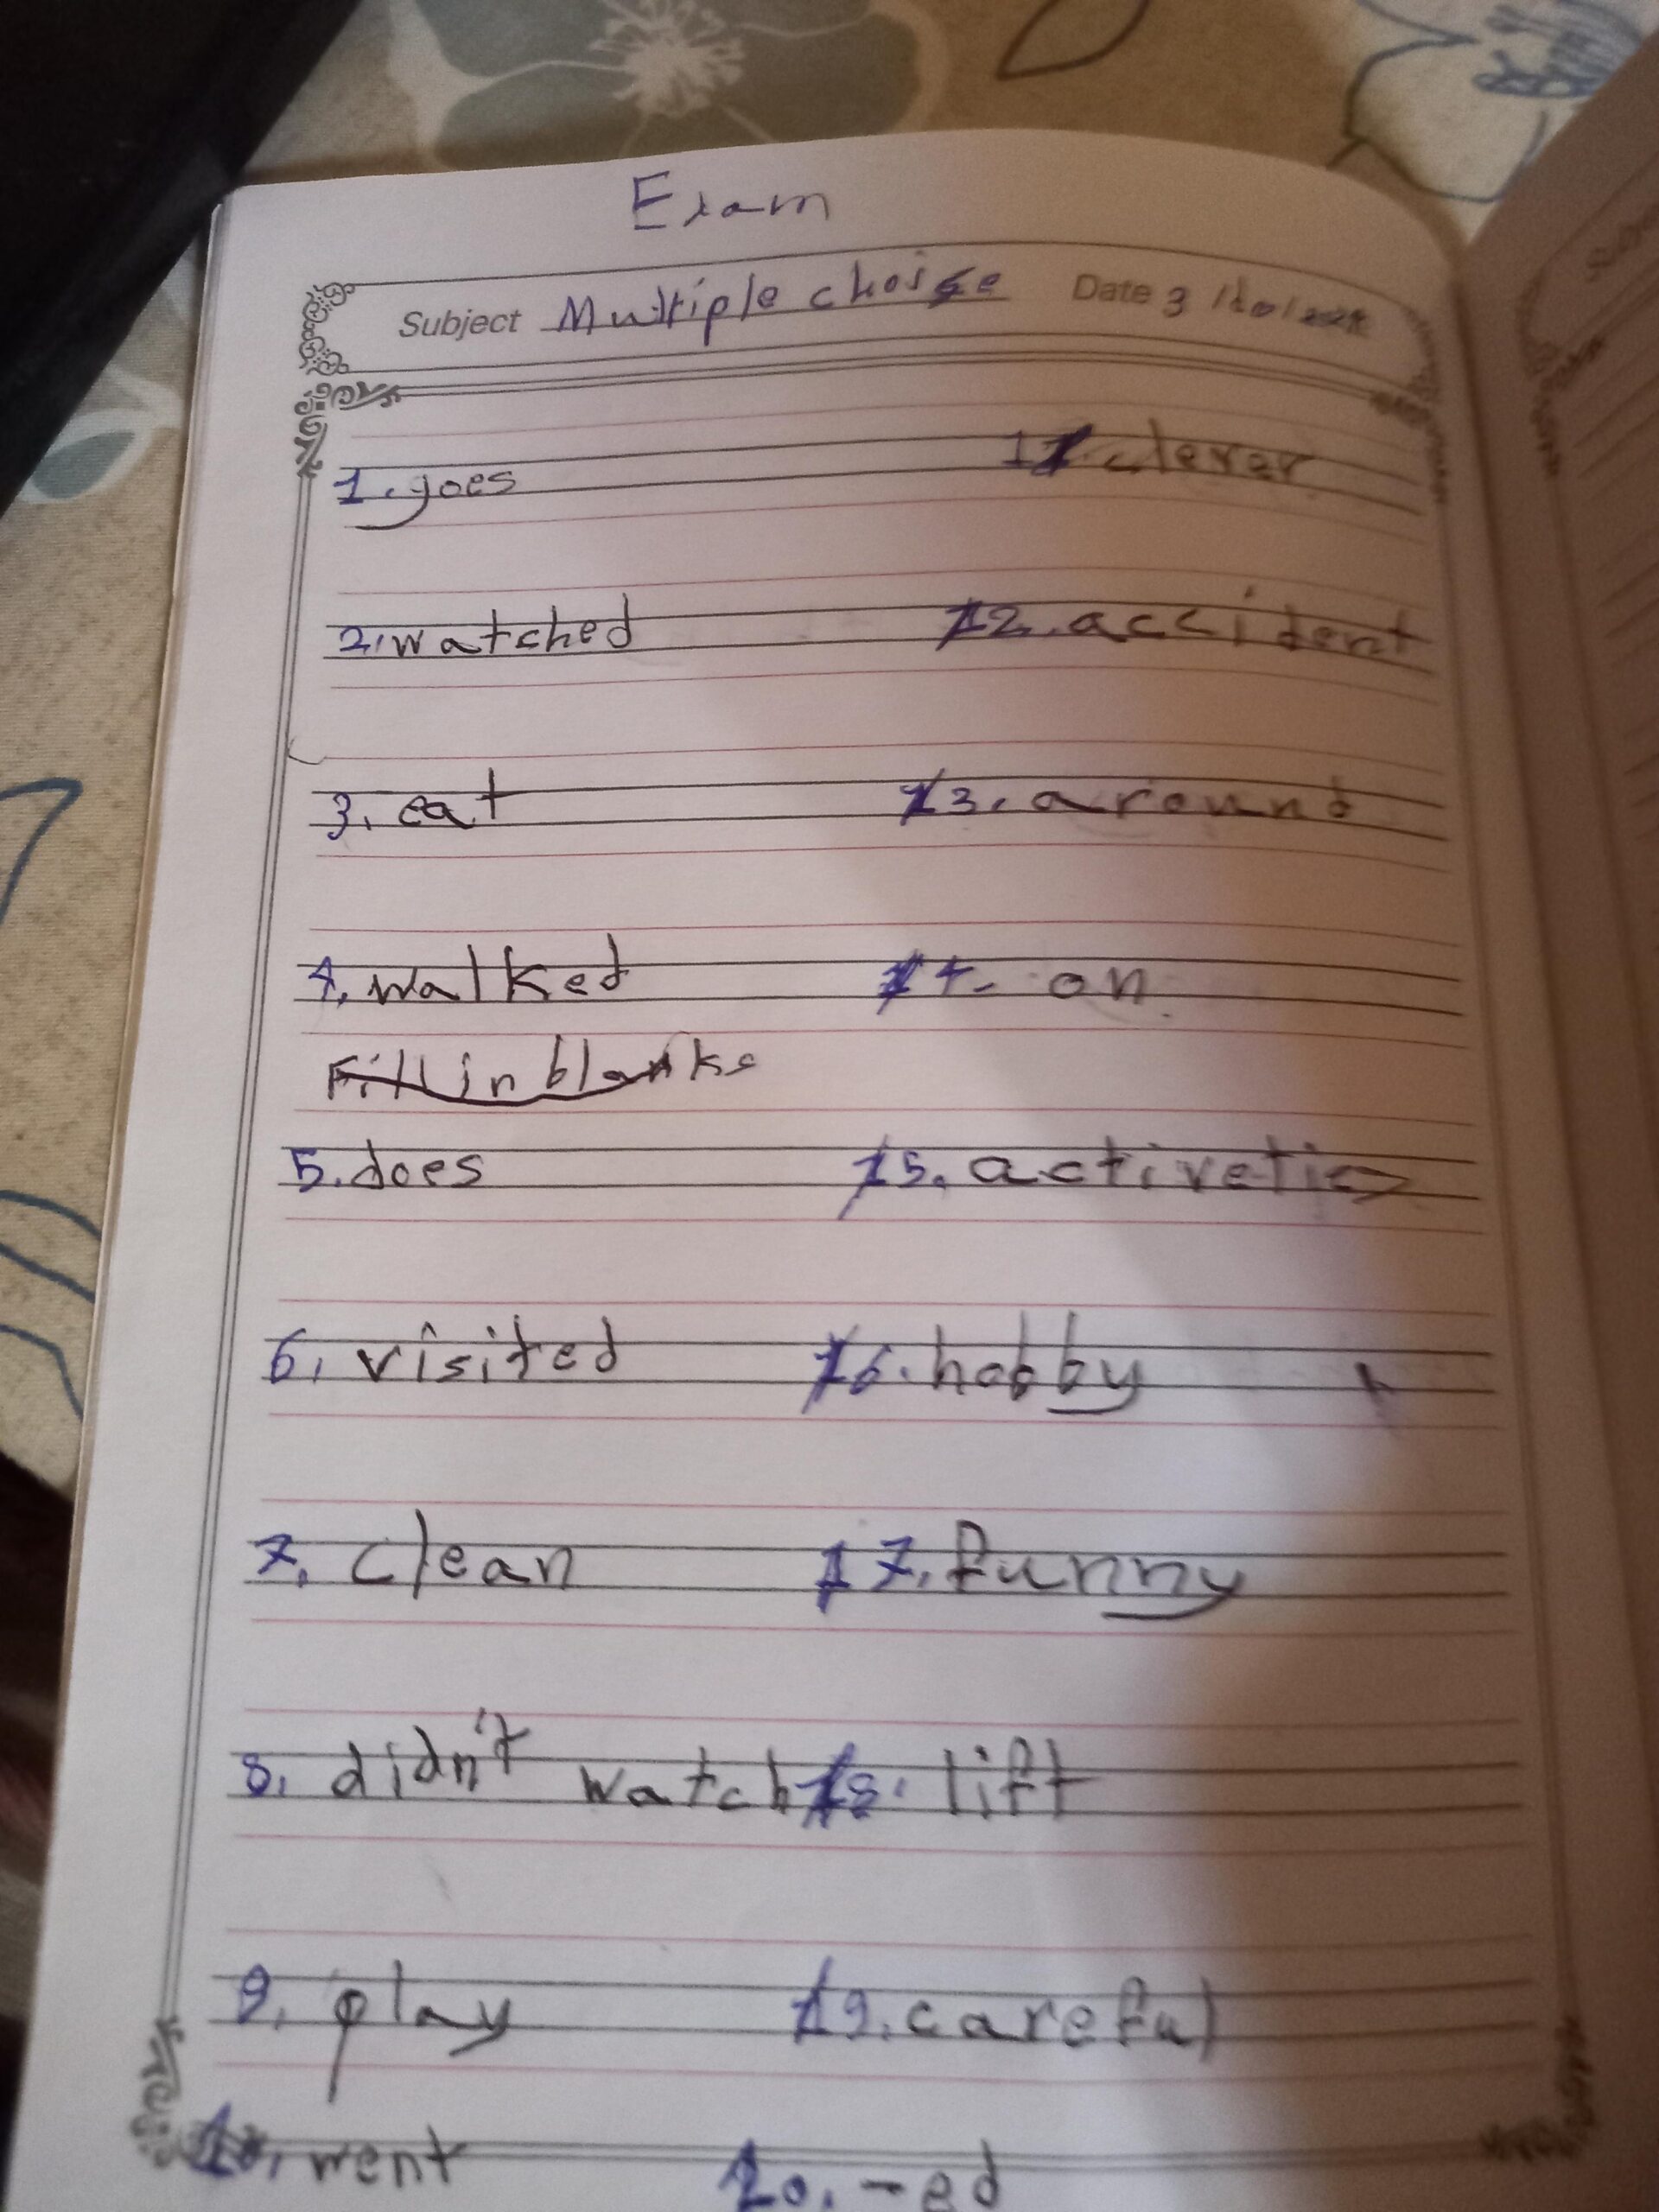 Exam
Subject Multiple choise Date 3
1. goes
11. clever
2. watched
12. accident
3. eat
13. around
4. walked
14. on
Fill in blanks
5. does
15.
6. visited
16. hobby
7. clean
17. funny
8. didn't watch
18. lift
9. play
19. careful
10. went
20. -ed